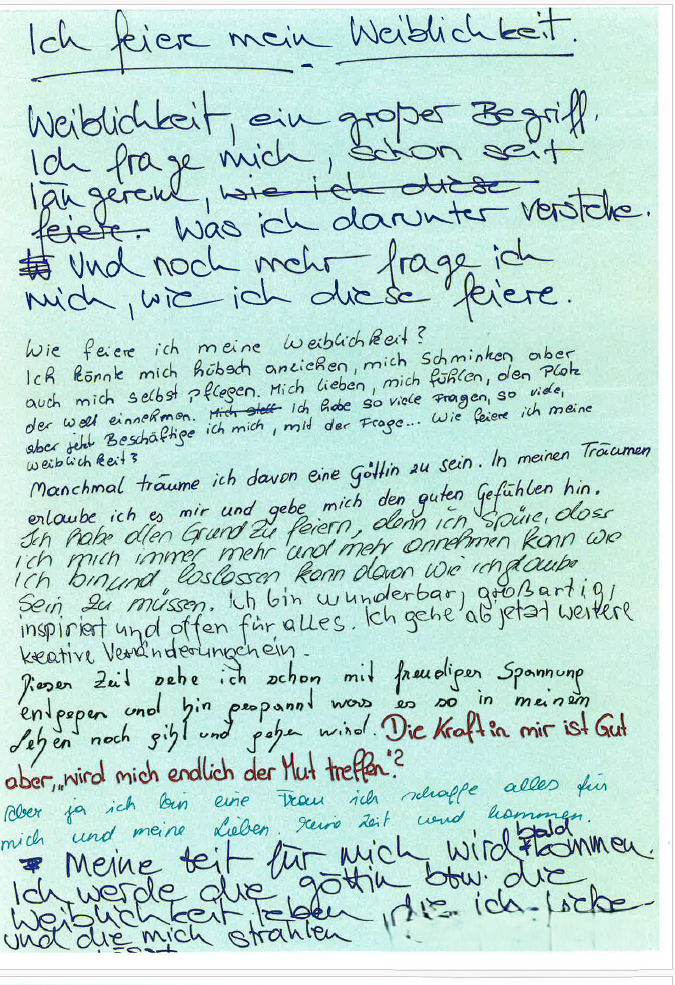 Ich feiere mein Weiblichkeit.
Weiblichkeit, ein großer Begriff.
Ich frage mich, schon seit
längerem, wie ich diese
feiere. Was ich darunter verstehe.
Und noch mehr frage ich
mich, wie ich diese feiere.
Wie feiere ich meine Weiblichkeit?
Ich könnte mich hübsch anziehen, mich schminken aber
auch mich selbst pflegen. Mich lieben, mich fühlen, den Platz
der Welt einnehmen. Mich Ich habe so viele Fragen, so viele,
aber jetzt Beschäftige ich mich, mit der Frage... Wie feiere ich meine
Weiblichkeit?
Manchmal träume ich davon eine Göttin zu sein. In meinen Träumen
erlaube ich es mir und gebe mich den guten Gefühlen hin.
Ich habe allen Grund zu feiern, denn ich spüre, dass
ich mich immer mehr und mehr annehmen kann wie
ich bin und loslassen kann davon wie ich glaube
sein zu müssen. Ich bin wunderbar, großartig,
inspiriert und offen für alles. Ich gehe ab jetzt weitere
keative Veränderungen ein.
Dieser Zeit sehe ich schon mit freudiger Spannung
entgegen und bin gespannt was es so in meinem
Leben noch gibt und geben wird. Die Kraft in mir ist Gut
aber, „wird mich endlich der Mut treffen“?
Aber ja ich bin eine Frau ich schaffe alles für
mich und meine Lieben. Meine Zeit wird kommen.
Meine Zeit für mich wird bald kommen.
Ich werde die göttin btw. die
Weiblichkeit leben, die ich liebe
und die mich strahlen